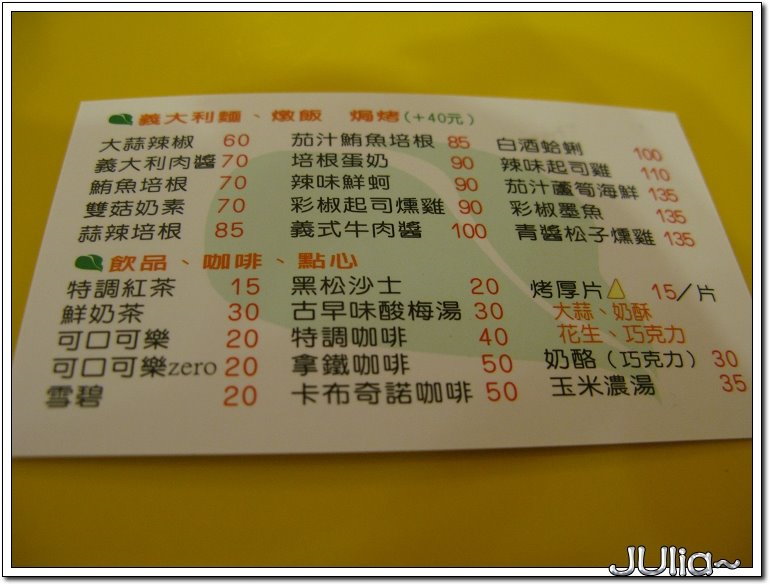 義大利麵、燉飯 焗烤(+40元)
大蒜辣椒 60 茄汁鮪魚培根 85 白酒蛤蜊 100
義大利肉醬 70 培根蛋奶 90 辣味起司雞 110
鮪魚培根 70 辣味鮮蚵 90 茄汁蘆筍海鮮 135
雙菇奶素 70 彩椒起司燻雞 90 彩椒墨魚 135
蒜辣培根 85 義式牛肉醬 100 青醬松子燻雞 135
飲品、咖啡、點心
特調紅茶 15 黑松沙士 20 烤厚片 15/片
鮮奶茶 30 古早味酸梅湯 30 大蒜、奶酥
可口可樂 20 特調咖啡 40 花生、巧克力
可口可樂zero 20 拿鐵咖啡 50 奶酪(巧克力) 30
雪碧 20 卡布奇諾咖啡 50 玉米濃湯 35
JUlia~